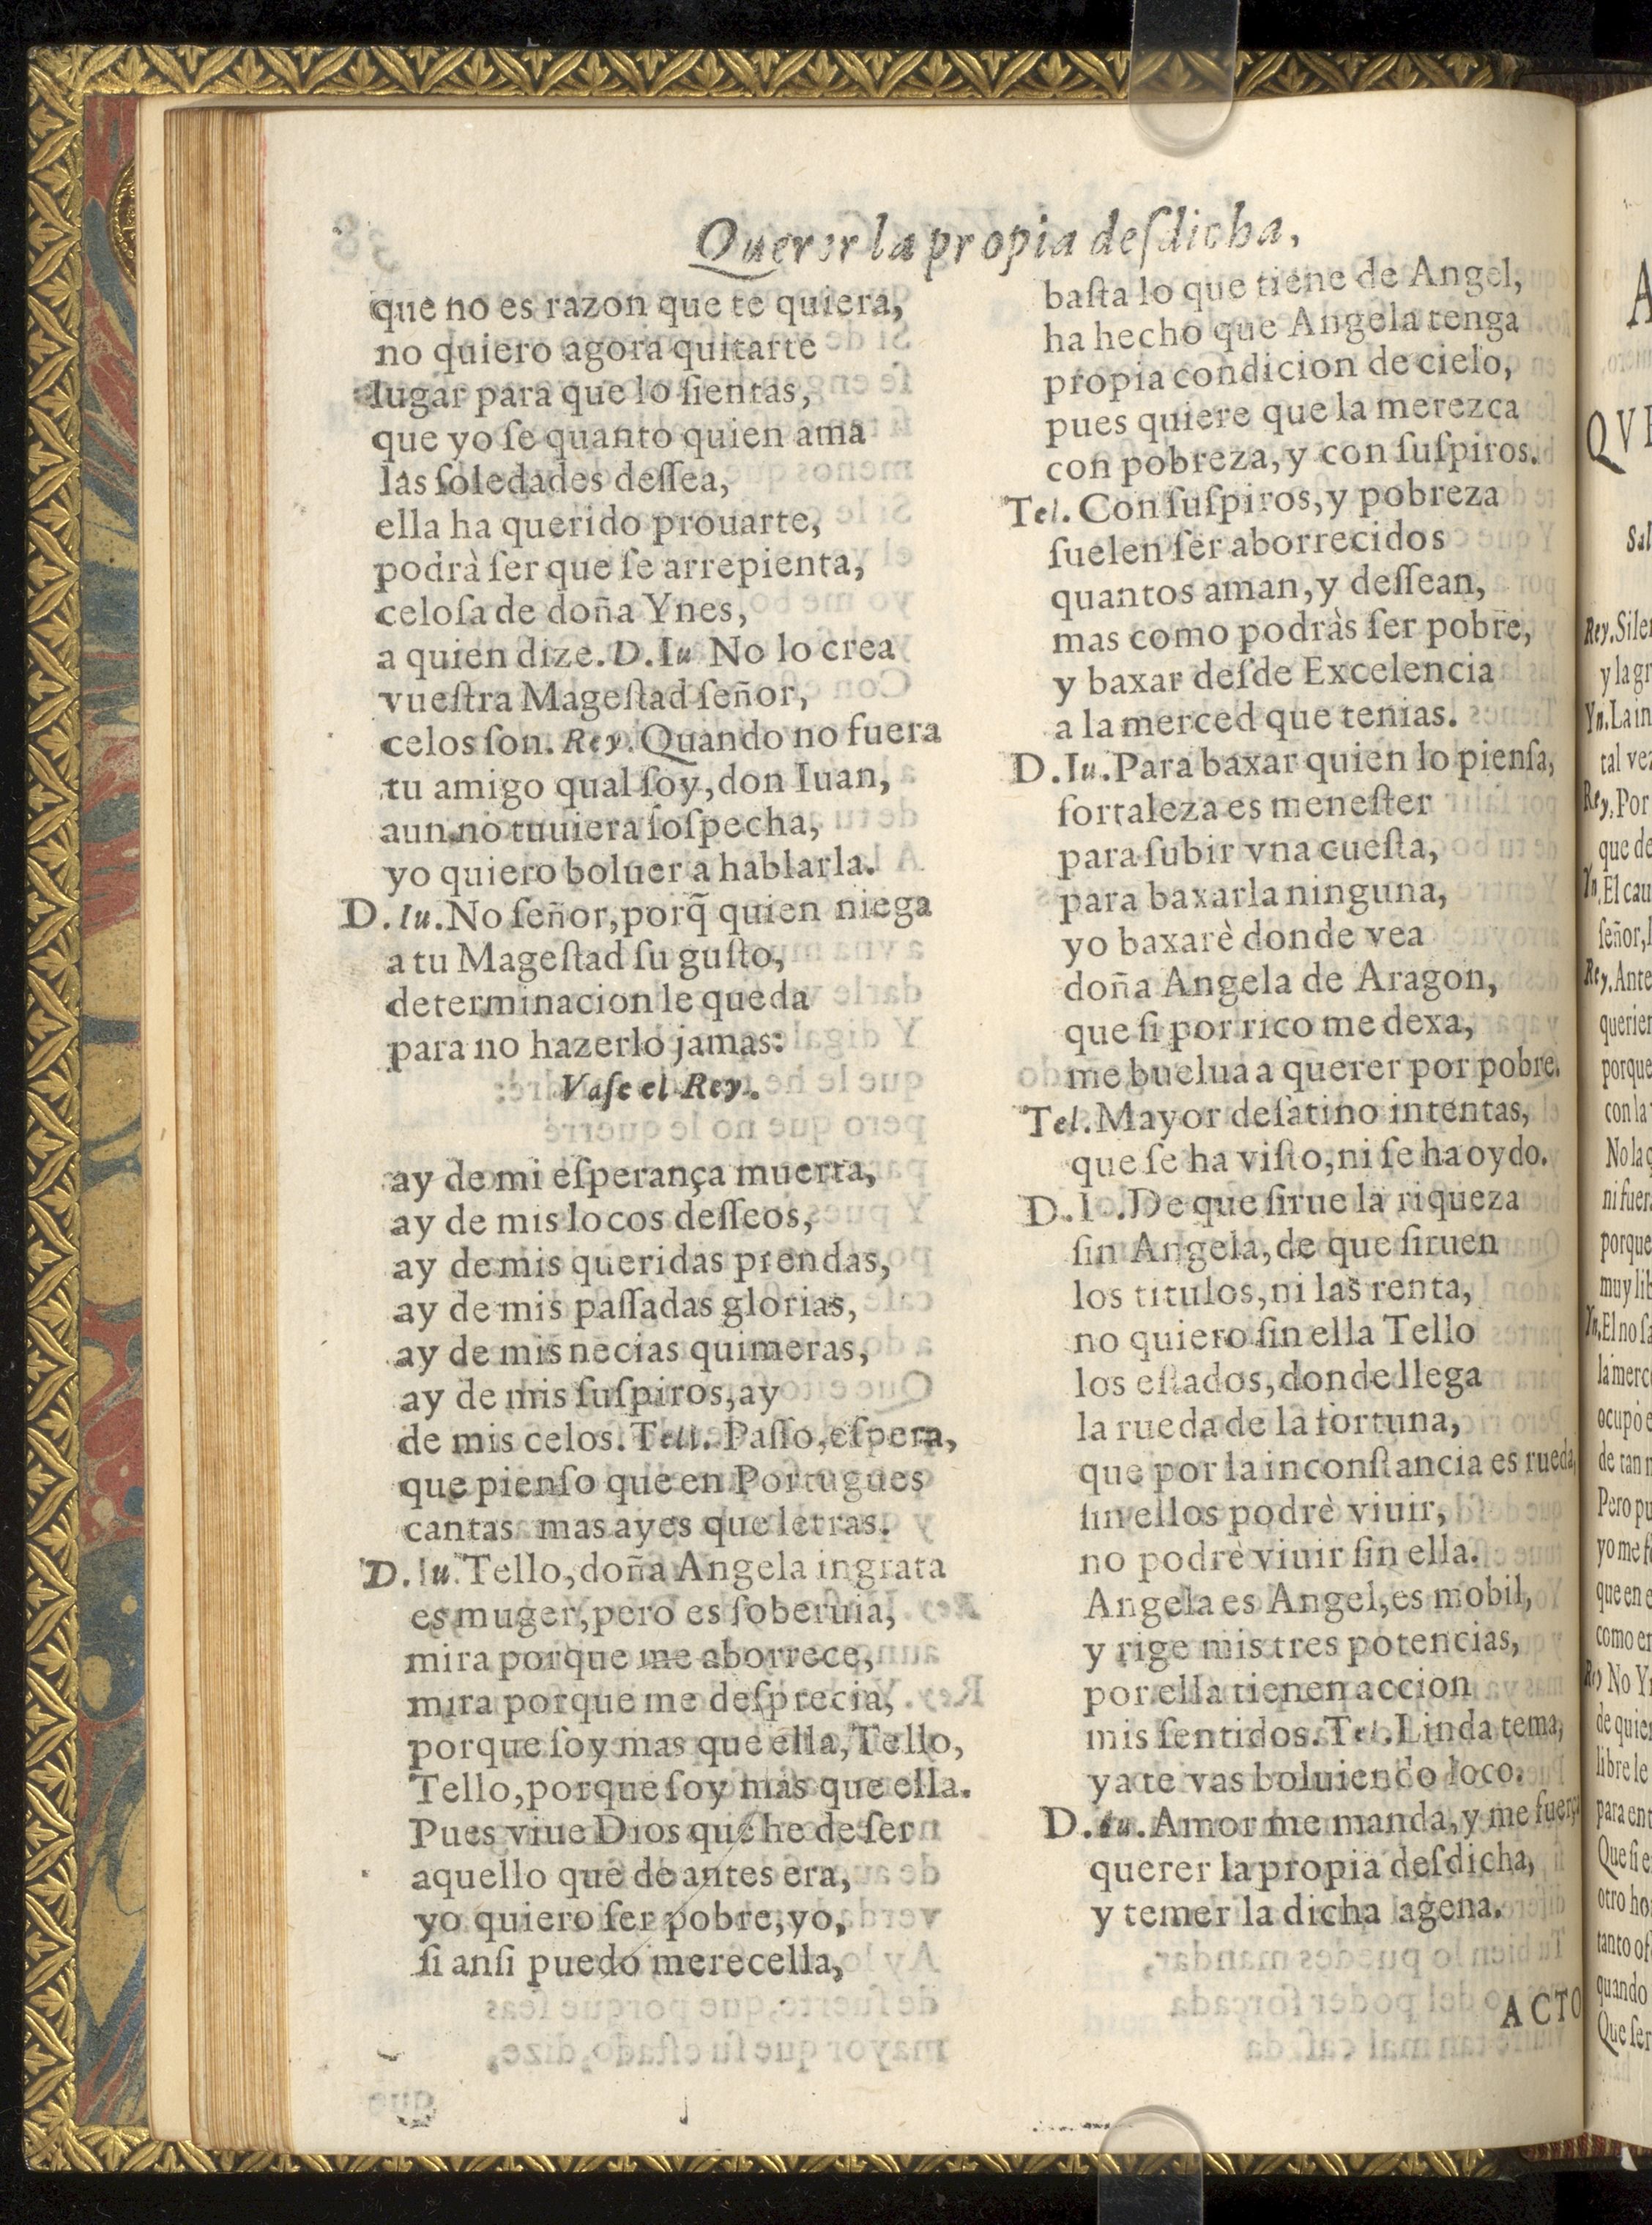 Querer la propia deſdicha,
que no es razon que te quiera,
no quiero agora quitarte
lugar para que lo ſientas,
que yo ſe quanto quien ama
las ſoledades deſſea,
ella ha querido prouarte,
podrà ſer que ſe arrepienta,
celoſa de doña Ynes,
a quien dize. D.Iu No lo crea
vueſtra Mageſtad ſeñor,
celos ſon. Rey. Quando no fuera
tu amigo qual ſoy, don Iuan,
aun no tuuiera ſoſpecha,
yo quiero boluer a hablarla.
D.Iu. No ſeñor, porq̃ quien niega
a tu Mageſtad ſu guſto,
determinacion le queda
para no hazerlo jamas:
Vaſe el Rey.
ay de mi eſperança muerta,
ay de mis locos deſſeos,
ay de mis queridas prendas,
ay de mis paſſadas glorias,
ay de mis necias quimeras,
ay de mis ſuſpiros, ay
de mis celos. Tell. Paſſo, eſpera,
que pienſo que en Portugues
cantas mas ayes que letras.
D.Iu. Tello, doña Angela ingrata
es muger, pero es ſoberuia,
mira porque me aborrece,
mira porque me deſprecia,
porque ſoy mas que ella, Tello,
Tello, porque ſoy mas que ella.
Pues viue Dios que he de ſer
aquello que de antes era,
yo quiero ſer pobre, yo,
ſi anſi puedo merecella,
baſta lo que tiene de Angel,
ha hecho que Angela tenga
propia condicion de cielo,
pues quiere que la merezca
con pobreza, y con ſuſpiros.
Tel. Con ſuſpiros, y pobreza
ſuelen ſer aborrecidos
quantos aman, y deſſean,
mas como podràs ſer pobre,
y baxar deſde Excelencia
a la merced que tenias.
D.Iu. Para baxar quien lo pienſa,
fortaleza es meneſter
para ſubir vna cueſta,
para baxarla ninguna,
yo baxarè donde vea
doña Angela de Aragon,
que ſi por rico me dexa,
me buelua a querer por pobre.
Tel. Mayor deſatino intentas,
que ſe ha viſto, ni ſe ha oydo.
D.I . De que ſirue la riqueza
ſin Angela, de que ſiruen
los titulos, ni las renta,
no quiero ſin ella Tello
los eſtados, donde llega
la rueda de la fortuna,
que por la inconſtancia es rueda,
ſin ellos podrè viuir,
no podrè viuir ſin ella.
Angela es Angel, es mobil,
y rige mis tres potencias,
por ella tienen accion
mis ſentidos. Tel. Linda tema,
ya te vas boluiendo loco.
D.Iu. Amor me manda, y me fuerça
querer la propia deſdicha,
y temer la dicha agena.
ACTO
A
QVE
Sal
Rey. Silen
y la gr
Yn. La in
tal vez
Rey. Por
que de
Yn. El cau
ſeñor, l
Rey. Ante
querier
porque
con la
No la q
ni fuer
porque
muy lib
Yn. El no ſa
la merc
ocupò e
de tan
Pero pu
yo me
que en e
como er
Rey No Yn
de quie
libre le
para ent
Que ſi e
otro ho
tanto of
quando
Que ſer